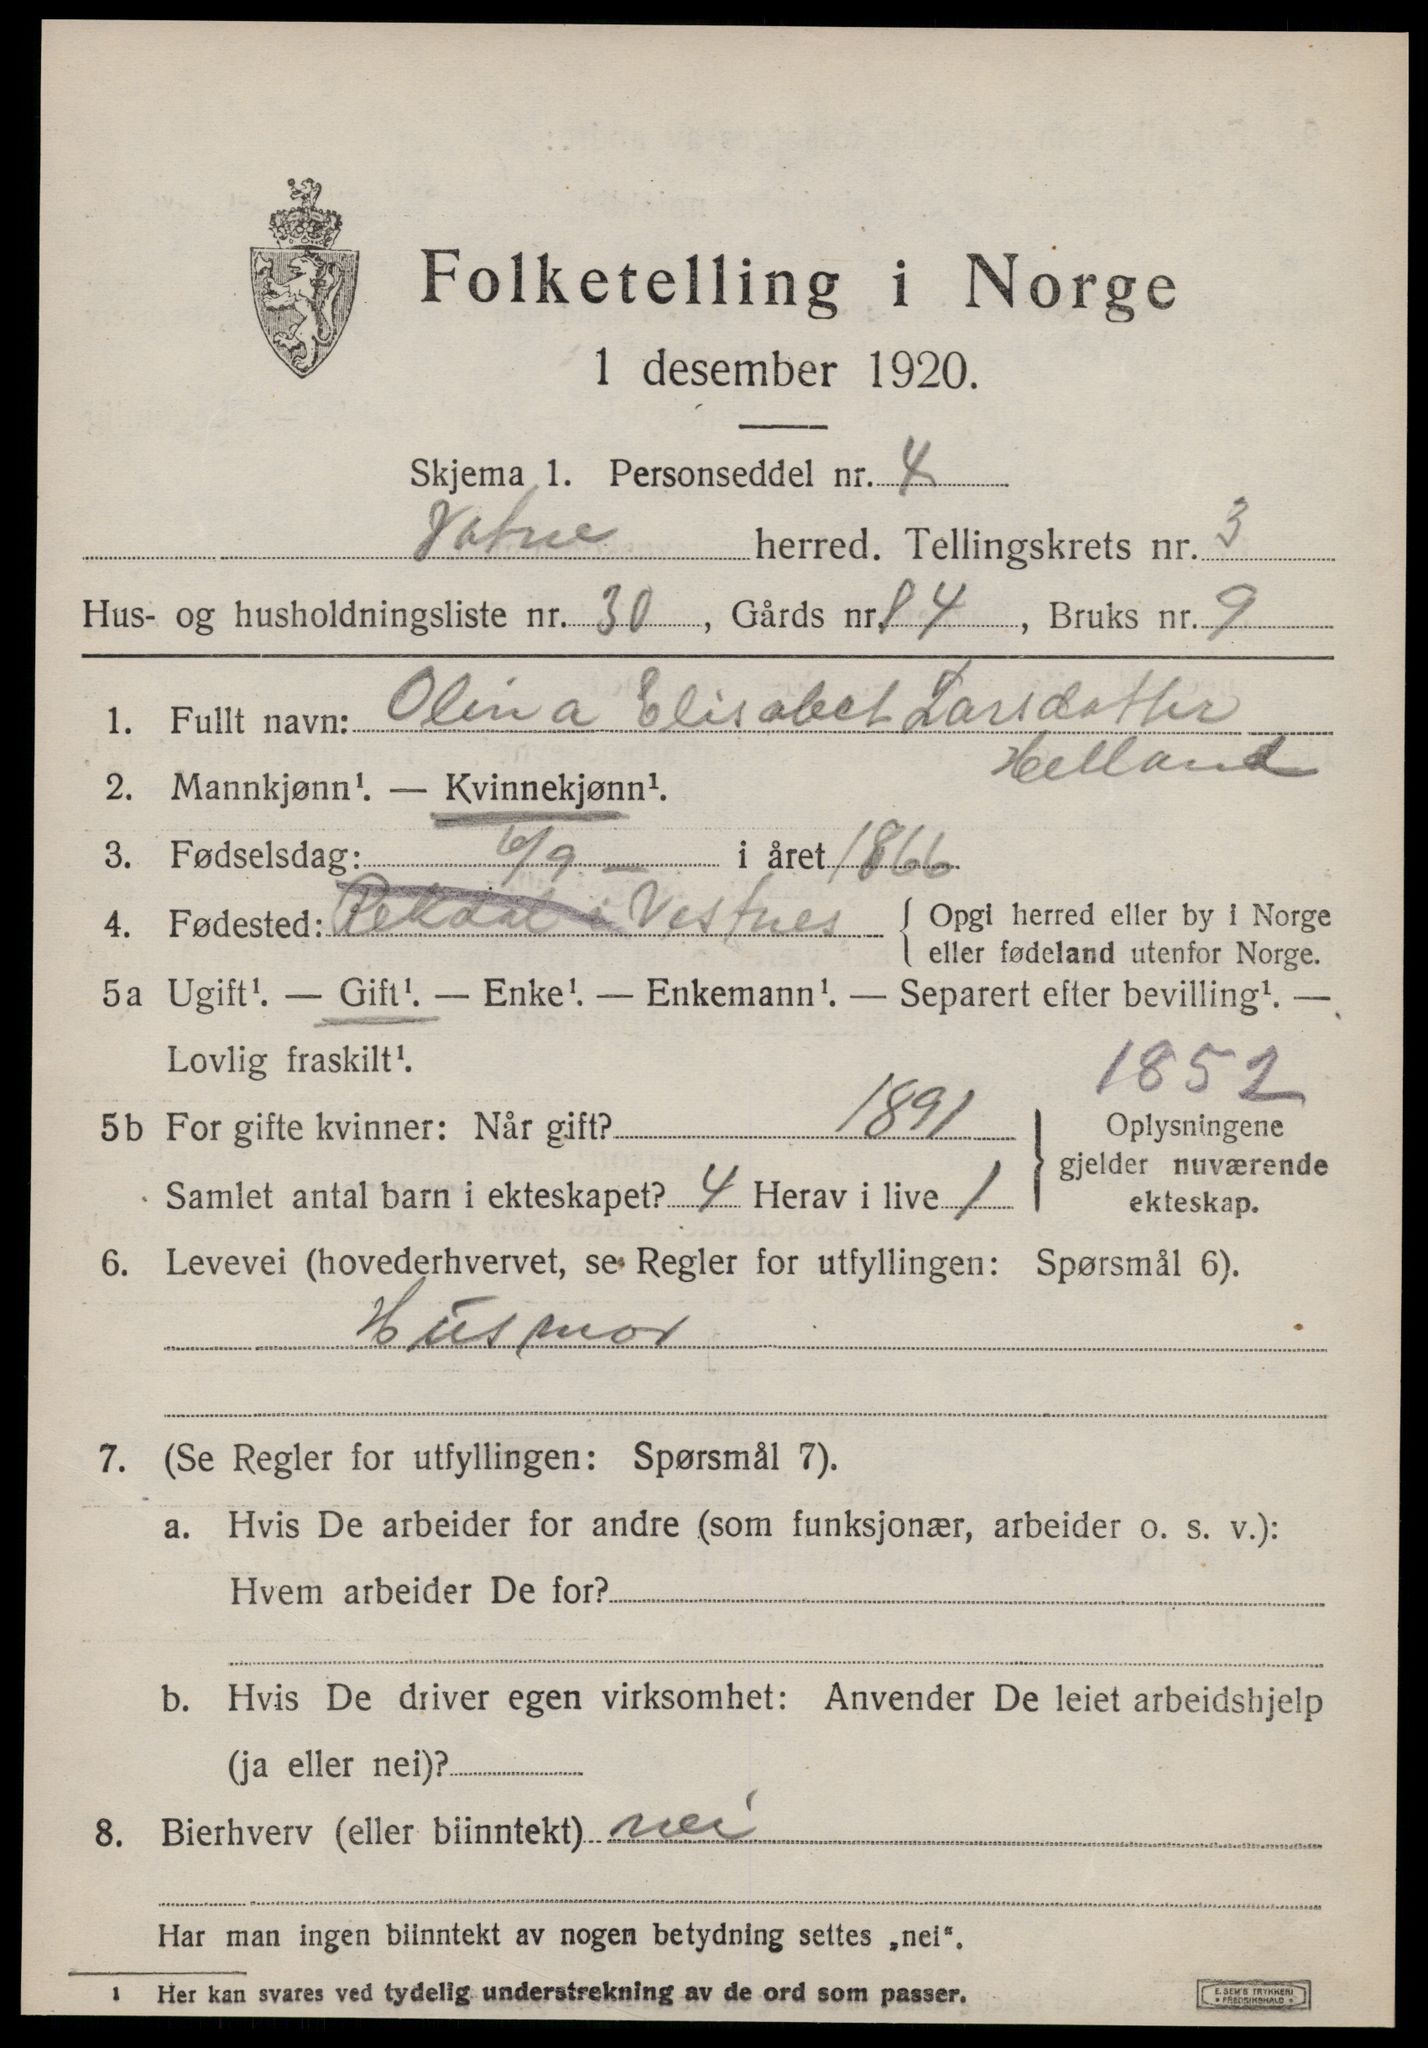 Folketelling i Norge
1 desember 1920.
Skjema 1. Personseddel nr. 4
Vatne herred. Tellingskrets nr. 3
Hus- og husholdningsliste nr. 30, Gårds nr. 84, Bruks nr. 9
1. Fullt navn: Olina Elisabet Larsdatter
Helland
2. Mannkjønn¹. — Kvinnekjønn¹.
3. Fødselsdag: 6/9 – i året 1866
4. Fødested: Rekdal i Vestnes { Opgi herred eller by i Norge
eller fødeland utenfor Norge.
5a Ugift¹. — Gift¹. — Enke¹. — Enkemann¹. — Separert efter bevilling¹. —
Lovlig fraskilt¹.
1852
5b For gifte kvinner: Når gift? 1891
Samlet antal barn i ekteskapet? 4 Herav i live 1
} Oplysningene
gjelder nuværende
ekteskap.
6. Levevei (hovederhvervet, se Regler for utfyllingen: Spørsmål 6).
Husmor
7. (Se Regler for utfyllingen: Spørsmål 7).
a. Hvis De arbeider for andre (som funksjonær, arbeider o. s. v.):
Hvem arbeider De for?
b. Hvis De driver egen virksomhet: Anvender De leiet arbeidshjelp
(ja eller nei)?
8. Bierhverv (eller biinntekt) nei
Har man ingen biinntekt av nogen betydning settes „nei“.
1 Her kan svares ved tydelig understrekning av de ord som passer.
E. SEM'S TRYKKERI
* FREDRIKSHALD *